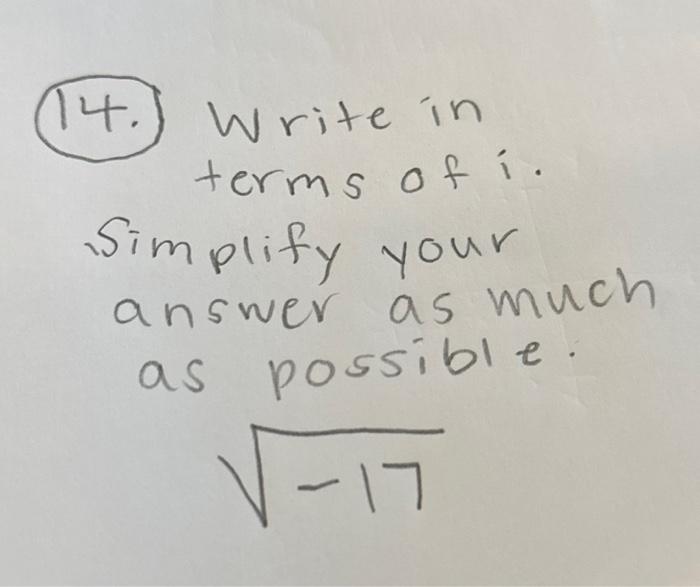 14. Write in
terms of i.
Simplify your
answer as much
as possible.
√-17